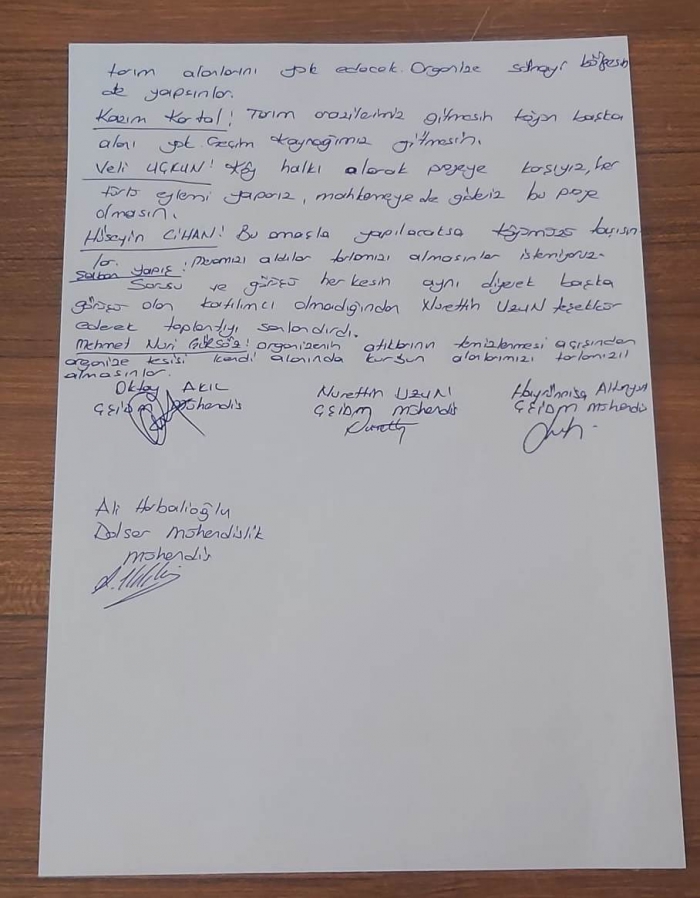 tarım alanlarını yok edecek. Organize sanayi bölgesin
de yapsınlar.
Kazım Kartal: Tarım arazilerimiz gitmesin köyün başka
alanı yok. Geçim kaynağımız gitmesin.
Veli UÇKUN: Köy halkı olarak projeye karşıyız, her
türlü eylemi yaparız, mahkemeye de gideriz bu proje
olmasın.
Hüseyin CİHAN: Bu amaçla yapılacaksa köyümüzü taşısın
lar. Meramızı aldılar tarlamızı almasınlar istemiyoruz.
Şaban yapış:
Sorusu ve görüşü herkesin aynı diyerek başka
görüşü olan katılımcı olmadığından Nurettin UZUN teşekkür
ederek toplantıyı sonlandırdı.
Mehmet Nuri: organizenin atıklarının temizlenmesi açısından
organize tesisi kendi alanında kursun alanlarımızı
almasınlar.
Oktay AKIL Nurettin UZUN Hayrünnisa
ÇEİDM Mühendis ÇEİDM Mühendis ÇEİDM Mühendis
Ali Harbalioğlu
Dolsar Mühendislik
Mühendis